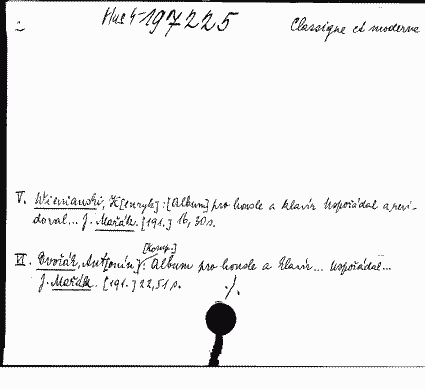 Mus 4-197225
Classique et moderne
V. Wieniawski, H[enryk]: [Album] pro housle a klavír uspořádal a revi-
doval... J. Mařák. [191.] 16, 30 s.
[Komp.]
VI. Dvořák, Ant[onín]: Album pro housle a klavír... uspořádal...
J. Mařák. [191.] 22, 51 s.
./.